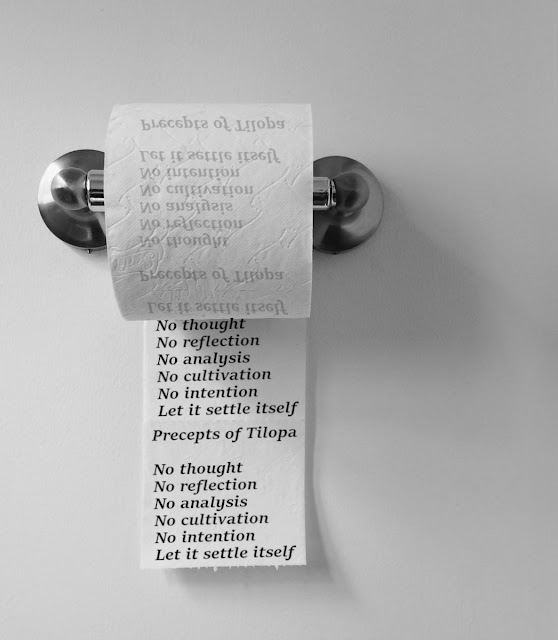 Precepts of Tilopa
Let it settle itself
No intention
No cultivation
No analysis
No reflection
No thought
Precepts of Tilopa
Let it settle itself
No thought
No reflection
No analysis
No cultivation
No intention
Let it settle itself
Precepts of Tilopa
No thought
No reflection
No analysis
No cultivation
No intention
Let it settle itself